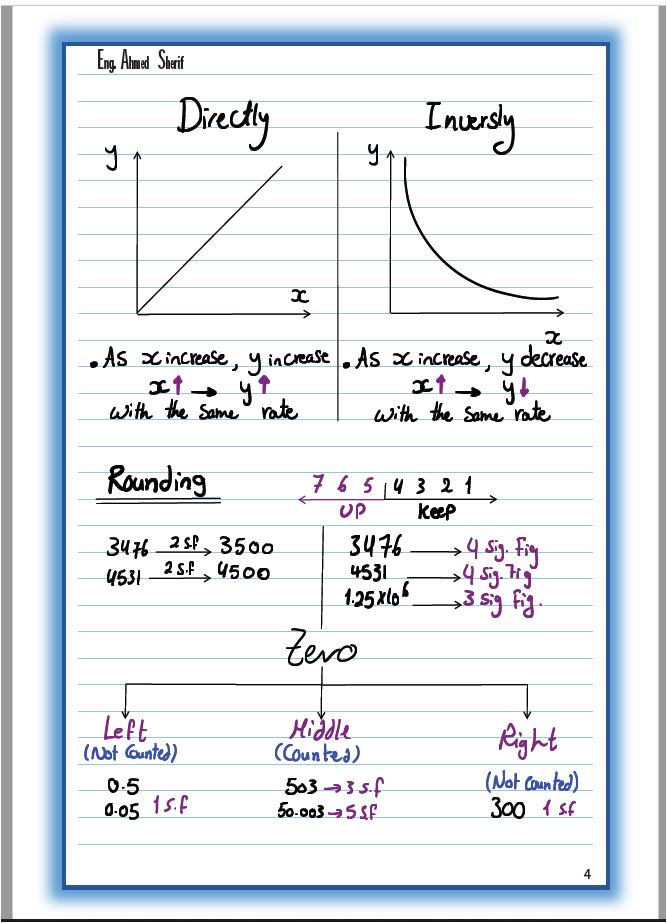 Eng. Ahmed Sherif
Directly
y
x
• As x increase, y increase
x↑ → y↑
with the same rate
Inversly
y
x
• As x increase, y decrease
x↑ → y↓
with the same rate
Rounding
7 6 5 4 3 2 1
UP Keep
3476 2 s.f → 3500
4531 2 s.f → 4500
3476 → 4 Sig. Fig
4531 → 4 Sig. Fig
1.25x10⁶ → 3 sig Fig.
Zero
Left
(Not Counted)
0.5
0.05 1 s.f
Middle
(Counted)
503 → 3 s.f
50.003 → 5 s.f
Right
(Not Counted)
300 1 s.f
4